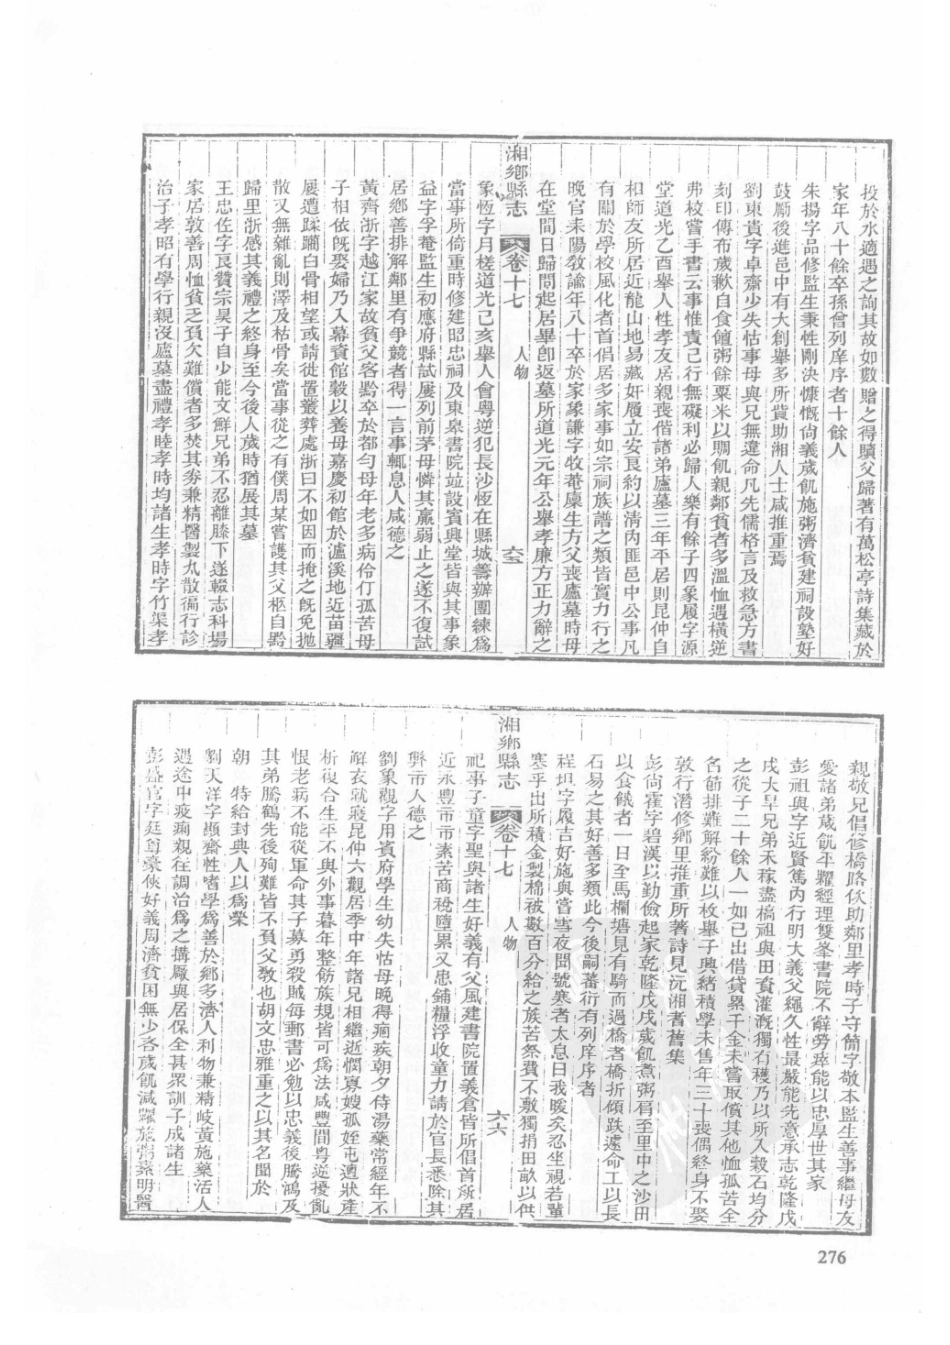 投於水適遇之詢其故如數贈之得贖父歸著有萬松亭詩集藏於
家年八十餘卒孫曾列庠序者十餘人
朱揚字品修監生秉性剛決慷慨尙義歲飢施粥濟貧建祠設塾好
鼓勵後進邑中有大創舉多所貲助湘人士咸推重焉
劉東貴字卓齋少失怙事母與兄無違命凡先儒格言及救急方書
刻印傳布歲歉自食饘粥餘粟米以賙飢親鄰貧者多溫恤遇橫逆
弗校嘗手書云事惟責己行無礙利必歸人樂有餘子四象履字源
堂道光乙酉舉人性孝友居親喪偕諸弟廬墓三年平居則昆仲自
相師友所居近龍山地易藏奸履立安良約以淸內匪邑中公事凡
有關於學校風化者首倡居多家事如宗祠族譜之類皆實力行之
晚官耒陽敎諭年八十卒於家象謙字牧菴廩生方父喪廬墓時母
在堂間日歸問起居畢卽返墓所道光元年公舉孝廉方正力辭之
湘鄉縣志 卷十七 人物 六五
象恆字月槎道光己亥舉人會粵逆犯長沙恆在縣城籌辦團練爲
當事所倚重時修建昭忠祠及東皋書院竝設賓興堂皆與其事象
益字孚菴監生初應府縣試屢列前茅母憐其羸弱止之遂不復試
居鄉善排解鄰里有爭競者得一言事輒息人咸德之
黃齊浙字越江家故貧父客黔卒於都勻母年老多病伶仃孤苦母
子相依旣娶婦乃入幕賓館穀以養母嘉慶初館於瀘溪地近苗疆
屢遭蹂躪白骨相望或請徙置叢葬處浙曰不如因而掩之旣免拋
散又無雜亂則澤及枯骨矣當事從之有僕周某嘗護其父柩自黔
歸里浙感其義禮之終身至今後人歲時猶展其墓
王忠佐字良贊宗昊子自少能文鮮兄弟不忍離膝下遂輟志科場
家居敦善周恤貧乏負欠難償者多焚其劵兼精醫製丸散徧行診
治子孝昭有學行親沒廬墓盡禮孝睦孝時均諸生孝時字竹渠孝
親敬兄倡修橋路佽助鄰里孝時子守簡字敬本監生善事繼母友
愛諸弟歲飢平糶經理雙峯書院不辭勞瘁能以忠厚世其家
彭祖與字近賢篤內行明大義父繩久性最嚴能先意承志乾隆戊
戌大旱兄弟禾稼盡槁祖與田資灌溉獨有穫乃以所入穀石均分
之從子二十餘人一如己出借貸累千金未嘗取償其他恤孤苦全
名節排難解紛難以枚舉子興緒積學未售年三十喪偶終身不娶
敦行潛修鄉里推重所著詩見沅湘耆舊集
彭尙霍字碧漢以勤儉起家乾隆戊戌歲飢煮粥肩至里中之沙田
以食餓者一日至馬欄塘見有騎而過橋者橋折傾跌遽命工以長
石易之其好善多類此今後嗣蕃衍有列庠序者
祥坦字履吉好施與嘗雪夜聞號寒者太息曰我暖矣忍坐視若輩
寒乎出所積金製棉被數百分給之族苦祭費不敷獨捐田畝以供
湘鄉縣志 卷十七 人物 六六
祀事子童字聖與諸生好義有父風建書院置義倉皆所倡首所居
近永豐市市素苦商稅墮累又患鋪糧浮收童力請於官長悉除其
弊市人德之
劉象觀字用賓府學生幼失怙母晚得痼疾朝夕侍湯藥常經年不
解衣就寢昆仲六觀居季中年諸兄相繼逝憫寡嫂孤姪屯遭狀產
析復合生平不與外事暮年整飭族規皆可爲法咸豐間粵逆擾亂
恨老病不能從軍命其子募勇殺賊每郵書必勉以忠義後騰鴻及
其弟騰鶴先後殉難皆不負父敎也胡文忠雅重之以其名聞於
朝 特給封典人以爲榮
劉天洋字顯齋性嗜學爲善於鄉多濟人利物兼精岐黃施藥活人
遇途中疫痢親往調治爲之搆廠與居保全甚眾訓子成諸生
彭盛官字廷爵豪俠好義周濟貧困無少吝歲飢減糶施粥藥明醫
276